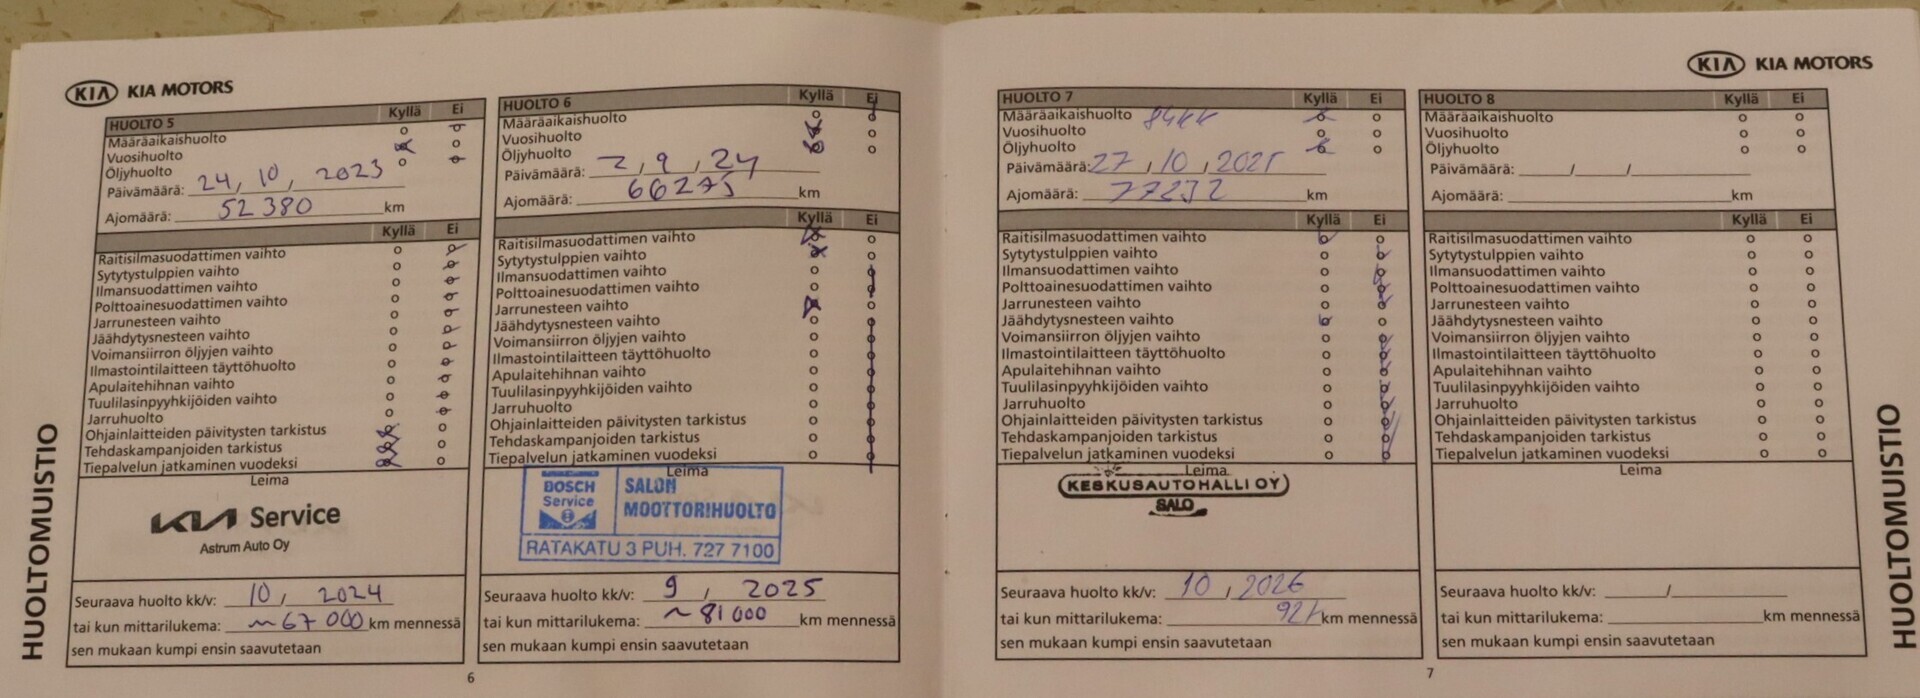 KIA KIA MOTORS
HUOLTO 5 Kyllä Ei
Määräaikaishuolto
Vuosihuolto
Öljyhuolto
Päivämäärä: 24, 10, 2023
Ajomäärä: 52 380 km
Kyllä Ei
Raitisilmasuodattimen vaihto
Sytytystulppien vaihto
Ilmansuodattimen vaihto
Polttoainesuodattimen vaihto
Jarrunesteen vaihto
Jäähdytysnesteen vaihto
Voimansiirron öljyjen vaihto
Ilmastointilaitteen täyttöhuolto
Apulaitehihnan vaihto
Tuulilasinpyyhkijöiden vaihto
Jarruhuolto
Ohjainlaitteiden päivitysten tarkistus
Tehdaskampanjoiden tarkistus
Tiepalvelun jatkaminen vuodeksi
Leima
KIA Service
Astrum Auto Oy
Seuraava huolto kk/v: 10, 2024
tai kun mittarilukema: ~67 000 km mennessä
sen mukaan kumpi ensin saavutetaan
HUOLTOMUISTIO
HUOLTO 6 Kyllä Ei
Määräaikaishuolto
Vuosihuolto
Öljyhuolto
Päivämäärä: 2, 9, 24
Ajomäärä: 66275 km
Kyllä Ei
Raitisilmasuodattimen vaihto
Sytytystulppien vaihto
Ilmansuodattimen vaihto
Polttoainesuodattimen vaihto
Jarrunesteen vaihto
Jäähdytysnesteen vaihto
Voimansiirron öljyjen vaihto
Ilmastointilaitteen täyttöhuolto
Apulaitehihnan vaihto
Tuulilasinpyyhkijöiden vaihto
Jarruhuolto
Ohjainlaitteiden päivitysten tarkistus
Tehdaskampanjoiden tarkistus
Tiepalvelun jatkaminen vuodeksi
Leima
BOSCH
Service
SALON
MOOTTORIHUOLTO
RATAKATU 3 PUH. 727 7100
Seuraava huolto kk/v: 9, 2025
tai kun mittarilukema: ~81 000 km mennessä
sen mukaan kumpi ensin saavutetaan
6
KIA KIA MOTORS
HUOLTO 7 Kyllä Ei
Määräaikaishuolto 84kk
Vuosihuolto
Öljyhuolto
Päivämäärä: 27, 10, 2025
Ajomäärä: 77232 km
Kyllä Ei
Raitisilmasuodattimen vaihto
Sytytystulppien vaihto
Ilmansuodattimen vaihto
Polttoainesuodattimen vaihto
Jarrunesteen vaihto
Jäähdytysnesteen vaihto
Voimansiirron öljyjen vaihto
Ilmastointilaitteen täyttöhuolto
Apulaitehihnan vaihto
Tuulilasinpyyhkijöiden vaihto
Jarruhuolto
Ohjainlaitteiden päivitysten tarkistus
Tehdaskampanjoiden tarkistus
Tiepalvelun jatkaminen vuodeksi
Leima
KESKUSAUTOHALLI OY
SALO
Seuraava huolto kk/v: 10, 2026
tai kun mittarilukema: km mennessä
sen mukaan kumpi ensin saavutetaan
HUOLTO 8 Kyllä Ei
Määräaikaishuolto
Vuosihuolto
Öljyhuolto
Päivämäärä: / /
Ajomäärä: km
Kyllä Ei
Raitisilmasuodattimen vaihto
Sytytystulppien vaihto
Ilmansuodattimen vaihto
Polttoainesuodattimen vaihto
Jarrunesteen vaihto
Jäähdytysnesteen vaihto
Voimansiirron öljyjen vaihto
Ilmastointilaitteen täyttöhuolto
Apulaitehihnan vaihto
Tuulilasinpyyhkijöiden vaihto
Jarruhuolto
Ohjainlaitteiden päivitysten tarkistus
Tehdaskampanjoiden tarkistus
Tiepalvelun jatkaminen vuodeksi
Leima
Seuraava huolto kk/v: /
tai kun mittarilukema: km mennessä
sen mukaan kumpi ensin saavutetaan
HUOLTOMUISTIO
7